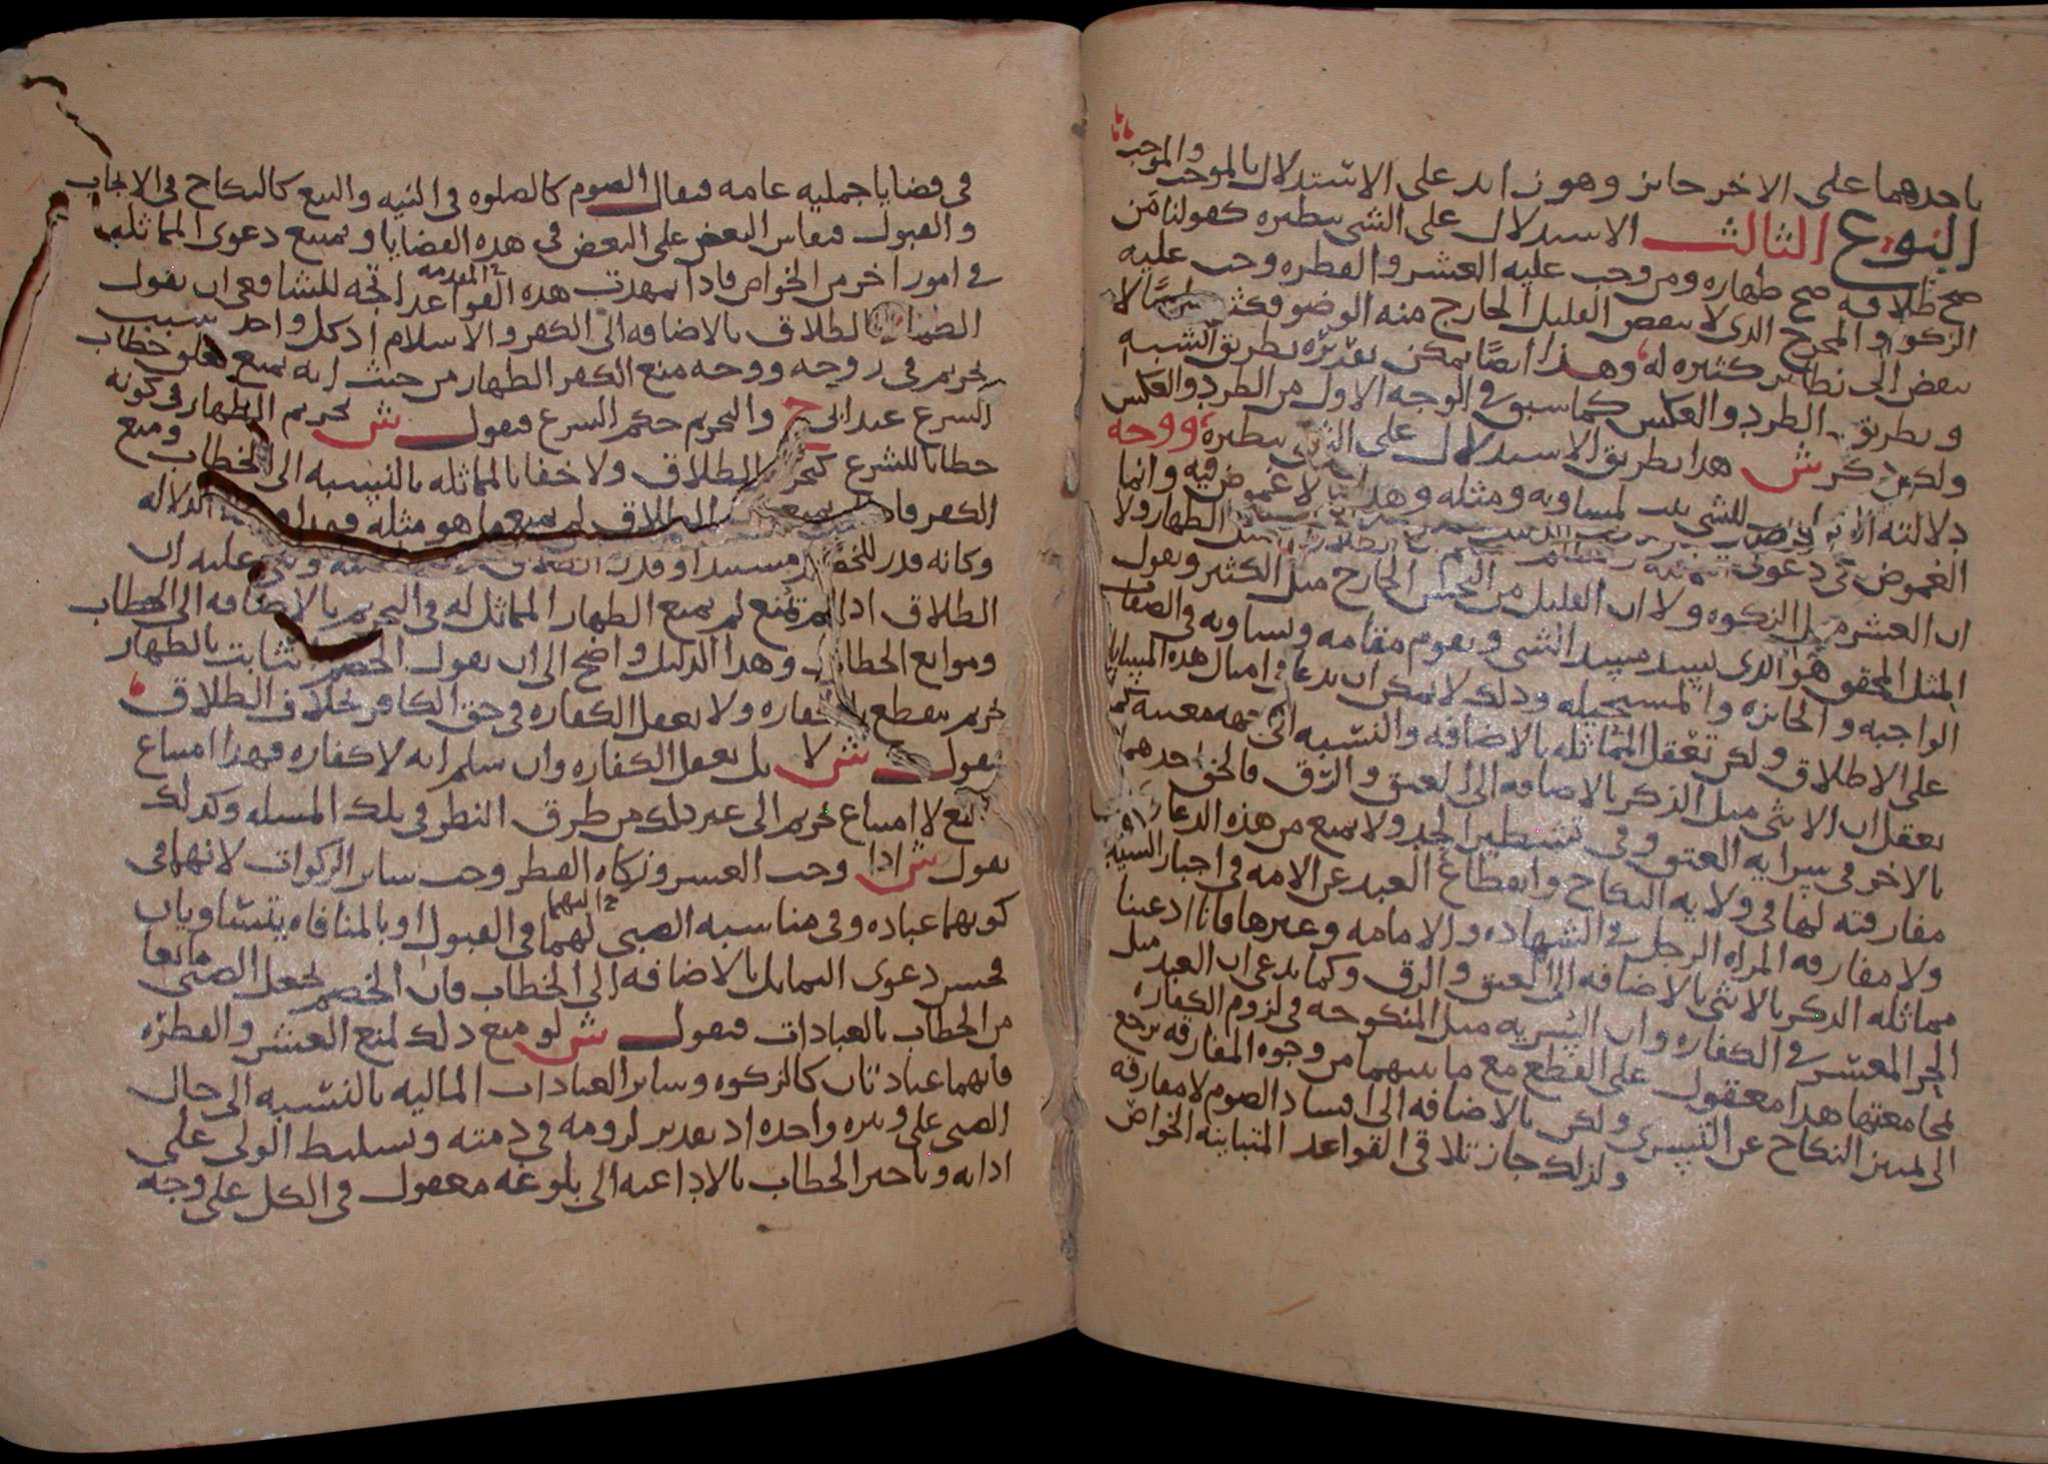 باحدهما على الاخر جايز وهو زايد على الاستدلال بالموجب والموجب
النوع الثالث الاستدلال على الشي بنظيره كقولنا من
صح طلاقه صح ظهاره ومن وجب عليه العشر والفطره وجب عليه
الزكوه والمخرج الذى لا ينقض القليل الخارج منه الوضو فكثيره لا
ينقض الى نظاير كثيره له وهذا ايضا يمكن تقريره بطريق الشبه
وبطريق الطرد والعكس كما سبق فى الوجه الاول من الطرد والعكس
ولكن ذكر ش هذا بطريق الاستدلال على الشى بنظيره ووجه
دلالته ان للشى يثبت لمساويه ومثله وهذا لا غموض فيه وانما
الغموض فى دعوى الظهار ولا
ان العشر مثل الزكوه ولا ان القليل من النجس الخارج مثل الكثير ونقول
المثل المحقق هو الذى يسد مسد الشى ويقوم مقامه ويساويه فى الصفات
الواجبه والجايزه والمستحيله وذلك لا يمكن ان يدعا فى امثال هذه المسايل
على الاطلاق ولكن تعقل المماثله بالاضافه والنسبه الى جهه معينه كما
يعقل ان الانثى مثل الذكر بالاضافه الى العتق والرق فالحق احدهما
بالاخر فى سرايه العتق وفى تشطير الحد ولا يمنع من هذه الدعاوى
مفارقته لها فى ولايه النكاح وانقطاع العبد عن الامه فى اجبار السيد
ولا مفارقه المراه الرجل فى الشهاده والامامه وغيرها فانا ادعينا
مماثله الذكر بالانثى بالاضافه الى العتق والرق وكما يدعى ان العبد مثل
الحر المعسر فى الكفاره وان السريه مثل المنكوحه فى لزوم الكفاره
لمجامعتها هذا معقول على القطع مع ما بينهما من وجوه المفارقه يرجع
الى تميز النكاح عن التسرى ولكن بالاضافه الى افساد الصوم لا مفارقه
ولذلك جاز تلاقى القواعد المتباينه الخواص
فى قضايا جمليه عامه فيقال الصوم كالصلوه فى النيه والبيع كالنكاح فى الايجاب
والقبول فيقاس البعض على البعض فى هذه القضايا ويمتنع دعوى المماثله
فى امور اخر من الخواص فاذا تمهدت هذه القواعد المقدمه اتجه للشافعى ان يقول
الظهار كالطلاق بالاضافه الى الكفر والاسلام اذ كل واحد سبب
تحريم فى زوجه ووجه منع الكفر الظهار من حيث انه يمنع تعلق خطاب
الشرع عند ابى ح والتحريم حكم الشرع فيقول ش تحريم الظهار فى كونه
خطابا للشرع كتحريم الطلاق ولا خفا بالمماثله بالنسبه الى الخطاب ومنع
الكفر فاذا لم يمنع الطلاق لم يمنع ما هو مثله الدلاله
وكانه قدر للخصم مستندا وقدر
الطلاق اذا لم يمنع لم يمنع الظهار المماثل له فى التحريم بالاضافه الى الخطاب
وموانع الخطاب وهذا الدليل واضح الى ان يقول الخصم الثابت بالظهار
تحريم ينقطع بالكفاره ولا يعقل الكفاره فى حق الكافر بخلاف الطلاق
فيقول ش لا بل يعقل الكفاره وان سلم انه لا كفاره فهذا امتناع
لا امتناع تحريم الى غير ذلك من طرق النظر فى تلك المسله وكذلك
يقول ش اذا وجب العشر وزكاه الفطر وجب ساير الزكوات لانهما فى
كونهما عباده وفى مناسبه الصبى لهما فى القبول او بالمنافاه يتساويان
فحسن دعوى التماثل بالاضافه الى الخطاب فان الخصم يجعل الصبى مانعا
من الخطاب بالعبادات فيقول ش لو منع ذلك لمنع العشر والفطره
فانهما عبادتان كالزكوه وساير العبادات الماليه بالنسبه الى حال
الصبى على وتيره واحده اذ تقدير لزومه فى ذمته وتسليط الولى على
ادايه وتاخير الخطاب بالاداعنه الى بلوغه معقول فى الكل على وجه